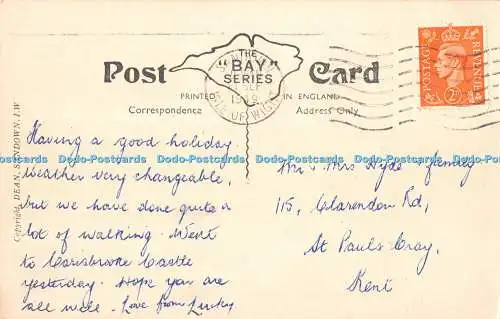 Post Card
THE
"BAY"
SERIES
PRINTED IN ENGLAND
Correspondence
Address Only
POSTAGE REVENUE
ISLE OF WIGHT
SEP
Copyright, DEAN, SANDOWN, I.W
Having a good holiday.
Weather very changeable,
but we have done quite a
lot of walking. Went
to Carisbrooke Castle
yesterday. Hope you are
all well. Love from
Mr & Mrs Hyde & family
115, Clarendon Rd,
St Pauls Cray,
Kent
Dodo-Postcards Dodo-Postcards Dodo-Postcards Dodo-Postcards Dodo-Postcards